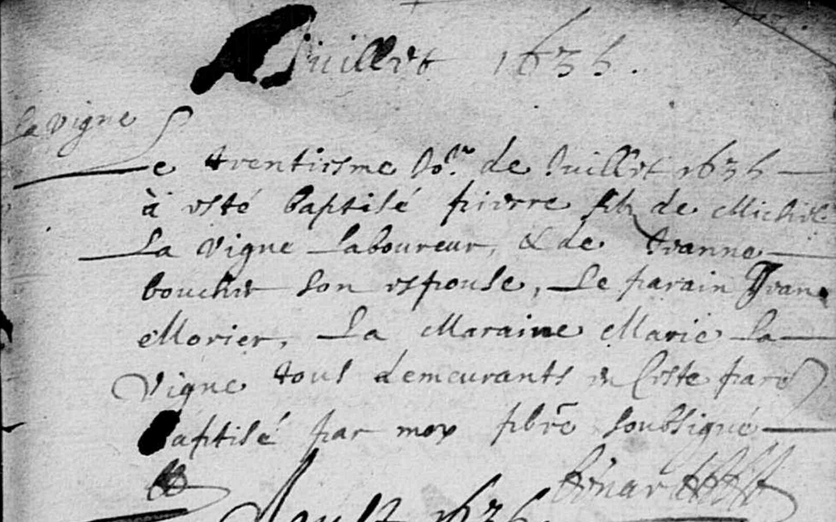 Juillet 1636.
la vigne
Le trentiesme Jo.r de Juillet 1636
à esté baptisé pierre fils de Michel
La vigne Laboureur, & de Jeanne
boucher son espouse, Le parain Jean
Morier, La Maraine Marie La
vigne tous demeurants en ceste par
baptisé par moy pbre soubsigné
Aoust 1636.